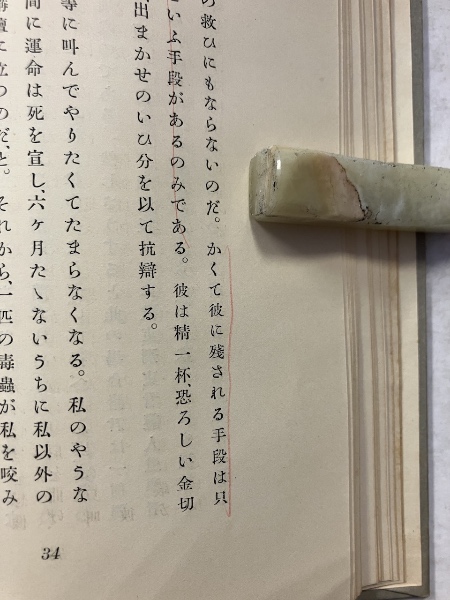 の救ひにもならないのだ。かくて彼に殘される手段は只
いふ手段があるのみである。彼は精一杯、恐ろしい金切
出まかせのいひ分を以て抗辯する。
に叫んでやりたくてたまらなくなる。私のやうな
間に運命は死を宣し、六ヶ月たゝないうちに私以外の
に立つのだ、と。それから、一匹の毒蟲が私を咬み
34